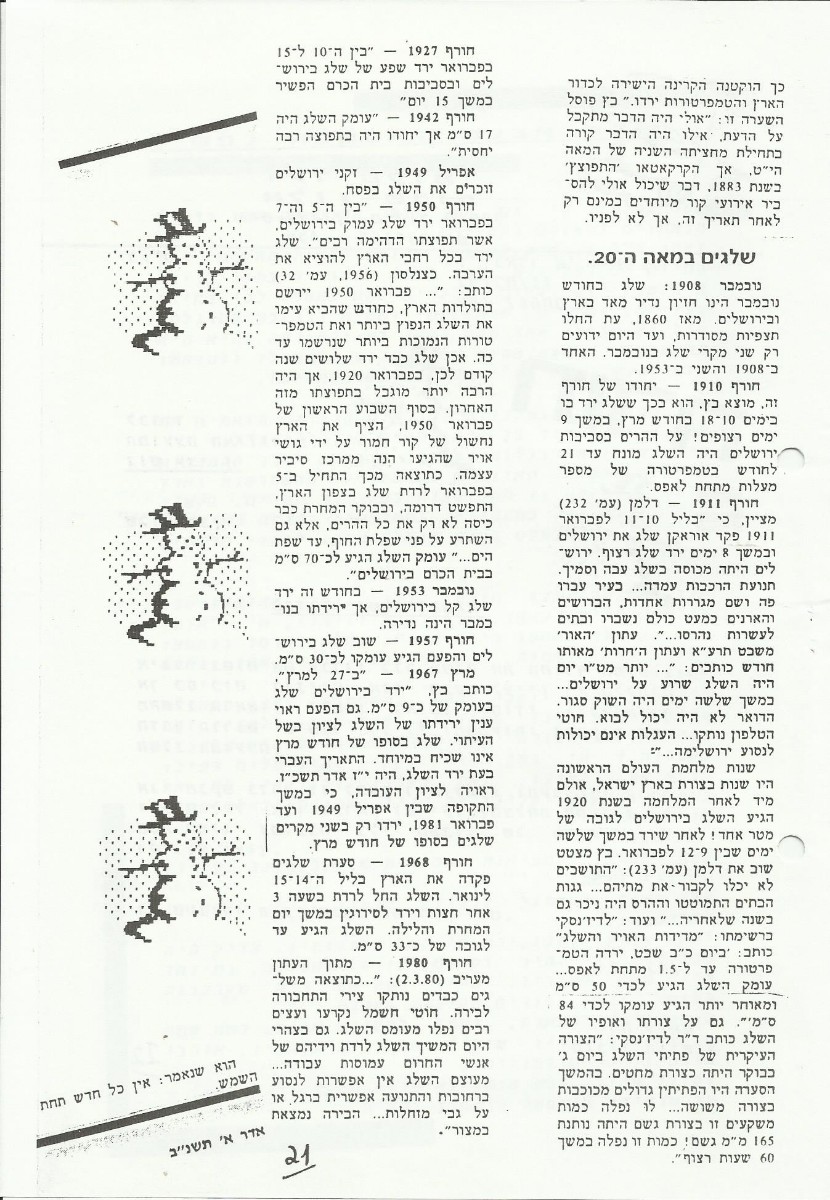 כך הוקטנה הקרינה הישירה לכדור
הארץ והטמפרטורות ירדו." בץ פוסל
השערה זו: "אולי היה הדבר מתקבל
על הדעת, אילו היה הדבר קורה
בתחילת מחציתה השניה של המאה
הי"ט, אך הקרקאטאו 'התפוצץ'
בשנת 1883, דבר שיכול אולי להס־
ביר אירועי קור מיוחדים במינם רק
לאחר תאריך זה, אך לא לפניו.
שלגים במאה ה־20.
נובמבר 1908: שלג בחודש
נובמבר הינו חזיון נדיר מאד בארץ
ובירושלים. מאז 1860, עת החלו
תצפיות מסודרות, ועד היום ידועים
רק שני מקרי שלג בנובמבר. האחד
ב־1908 והשני ב־1953.
חורף 1910 — יחודו של חורף
זה, מוצא בץ, הוא בכך ששלג ירד בו
בימים 10־18 בחודש מרץ, במשך 9
ימים רצופים! על ההרים בסביבות
ירושלים היה השלג מונח עד 21
לחודש בטמפרטורה של מספר
מעלות מתחת לאפס.
חורף 1911 — דלמן (עמ' 232)
מציין, כי "בליל 10־11 לפברואר
1911 פקד אוראקן שלג את ירושלים
ובמשך 8 ימים ירד שלג רצוף. ירוש־
לים היתה מכוסה בשלג עבה וסמיך.
תנועת הרכבות עמדה... בעיר עברו
פה ושם מגררות אחדות, הברושים
והארנים כמעט כולם נשברו ובתים
לעשרות נהרסו...". עתון 'האור'
משבט תרע"א ועתון ה'חרות' מאותו
חודש כותבים: "... יותר מט"ו יום
היה השלג שרוע על ירושלים...
במשך שלשה ימים היה השוק סגור.
הדואר לא היה יכול לבוא. חוטי
הטלפון נותקו... העגלות אינם יכולות
לנסוע ירושלימה..."
שנות מלחמת העולם הראשונה
היו שנות בצורת בארץ ישראל, אולם
מיד לאחר המלחמה בשנת 1920
הגיע השלג בירושלים לגובה של
מטר אחד! לאחר שירד במשך שלשה
ימים שבין 9־12 לפברואר. בץ מצטט
שוב את דלמן (עמ' 233): "התושבים
לא יכלו לקבור את מתיהם... גגות
הבתים התמוטטו וההרס היה ניכר גם
בשנה שלאחריה..." ועוד: "לדיז'נסקי
ברשימתו: "מדידות האויר והשלג"
כותב: 'ביום כ"ב שבט, ירדה הטמ־
פרטורה עד ל־1.5 מתחת לאפס...
עומק השלג הגיע לכדי 50 ס"מ
ומאוחר יותר הגיע עומקו לכדי 84
ס"מ'". גם על צורתו ואופיו של
השלג כותב ד"ר לדיז'נסקי: "הצורה
העיקרית של פתיתי השלג ביום ג'
בבוקר היתה כצורת מחטים. בהמשך
הסערה היו הפתיתין גדולים מכוכבות
בצורה משושה... לו נפלה כמות
משקעים זו בצורת גשם היתה נותנת
165 מ"מ גשם! כמות זו נפלה במשך
60 שעות רצוף".
חורף 1927 — "בין ה־10 ל־15
בפברואר ירד שפע של שלג בירוש־
לים ובסביבות בית הכרם הפשיר
במשך 15 יום"
חורף 1942 — "עומק השלג היה
17 ס"מ אך יחודו היה בתפוצה רבה
יחסית".
אפריל 1949 — זקני ירושלים
זוכרים את השלג בפסח.
חורף 1950 — "בין ה־5 וה־7
בפברואר ירד שלג עמוק בירושלים,
אשר תפוצתו הדהימה רבים". שלג
ירד בכל רחבי הארץ להוציא את
הערבה. כצנלסון (1956, עמ' 32)
כותב: "... פברואר 1950 יירשם
בתולדות הארץ, כחודש שהביא עימו
את השלג הנפוץ ביותר ואת הטמפר־
טורות הנמוכות ביותר שנרשמו עד
כה. אכן שלג כבד ירד שלושים שנה
קודם לכן, בפברואר 1920, אך היה
הרבה יותר מוגבל בתפוצתו מזה
האחרון. בסוף השבוע הראשון של
פברואר 1950, הציף את הארץ
נחשול של קור חמור על ידי גושי
אויר שהגיעו הנה ממרכז סיביר
עצמה. כתוצאה מכך התחיל ב־5
בפברואר לרדת שלג בצפון הארץ,
התפשט דרומה, ובבוקר המחרת כבר
כיסה לא רק את כל ההרים, אלא גם
השתרע על פני שפלת החוף, עד שפת
הים..." עומק השלג הגיע לכ־70 ס"מ
בבית הכרם בירושלים".
נובמבר 1953 — בחודש זה ירד
שלג קל בירושלים, אך ירידתו בנו־
במבר הינה נדירה.
חורף 1957 — שוב שלג בירוש־
לים והפעם הגיע עומקו לכ־30 ס"מ.
מרץ 1967 — "ב־27 למרץ",
כותב בץ, "ירד בירושלים שלג
בעומק של כ־9 ס"מ. גם הפעם ראוי
ענין ירידתו של השלג לציון בשל
העיתוי. שלג בסופו של חודש מרץ
אינו שכיח במיוחד. התאריך העברי
בעת ירד השלג, היה י"ז אדר תשכ"ז.
ראויה לציון העובדה, כי במשך
התקופה שבין אפריל 1949 ועד
פברואר 1981, ירדו רק בשני מקרים
שלגים בסופו של חודש מרץ.
חורף 1968 — סערת שלגים
פקדה את הארץ בליל ה־14־15
לינואר. השלג החל לרדת בשעה 3
אחר חצות וירד לסירוגין במשך יום
המחרת והלילה. השלג הגיע עד
לגובה של כ־33 ס"מ.
חורף 1980 — מתוך העתון
מעריב (2.3.80): "...כתוצאה משל־
גים כבדים נותקו צירי התחבורה
לבירה. חוטי חשמל נקרעו ועצים
רבים נפלו מעומס השלג. גם בצהרי
היום המשיך השלג לרדת וידיהם של
אנשי החרום עמוסות עבודה...
מעוצם השלג אין אפשרות לנסוע
ברחובות והתנועה אפשרית ברגל או
על גבי מזחלות... הבירה נמצאת
במצור".
הוא שנאמר: אין כל חדש תחת
השמש.
אדר א' תשנ"ב
21